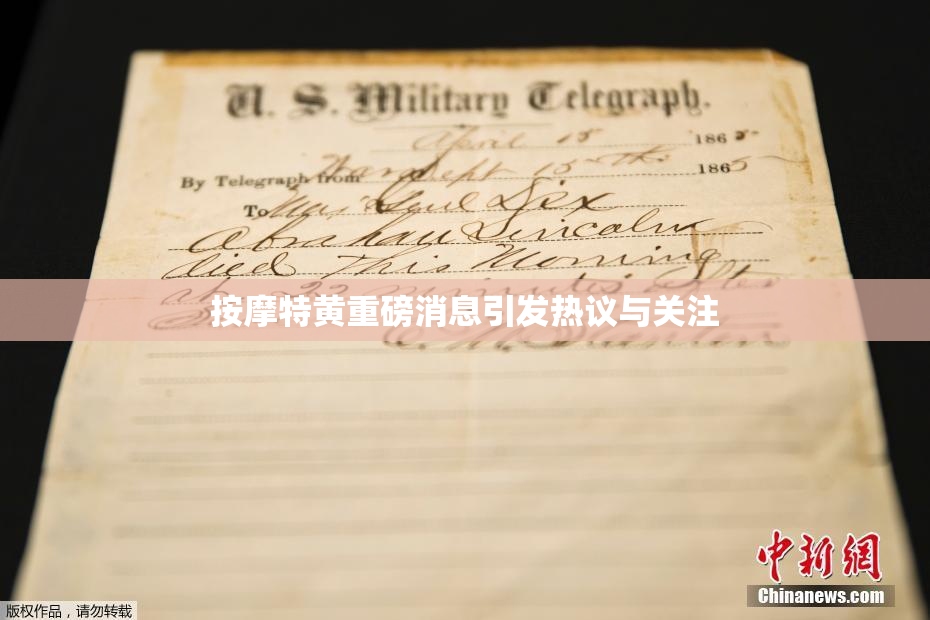 U. S. Military Telegraph.
April 15 1865
By Telegraph from War Dept 15th 1865
To Maj Genl Dix
Abraham Lincoln
died this Morning
at 22 minutes after
按摩特黄重磅消息引发热议与关注
E. M. Stanton
中新网
Chinanews.com
版权作品，请勿转载